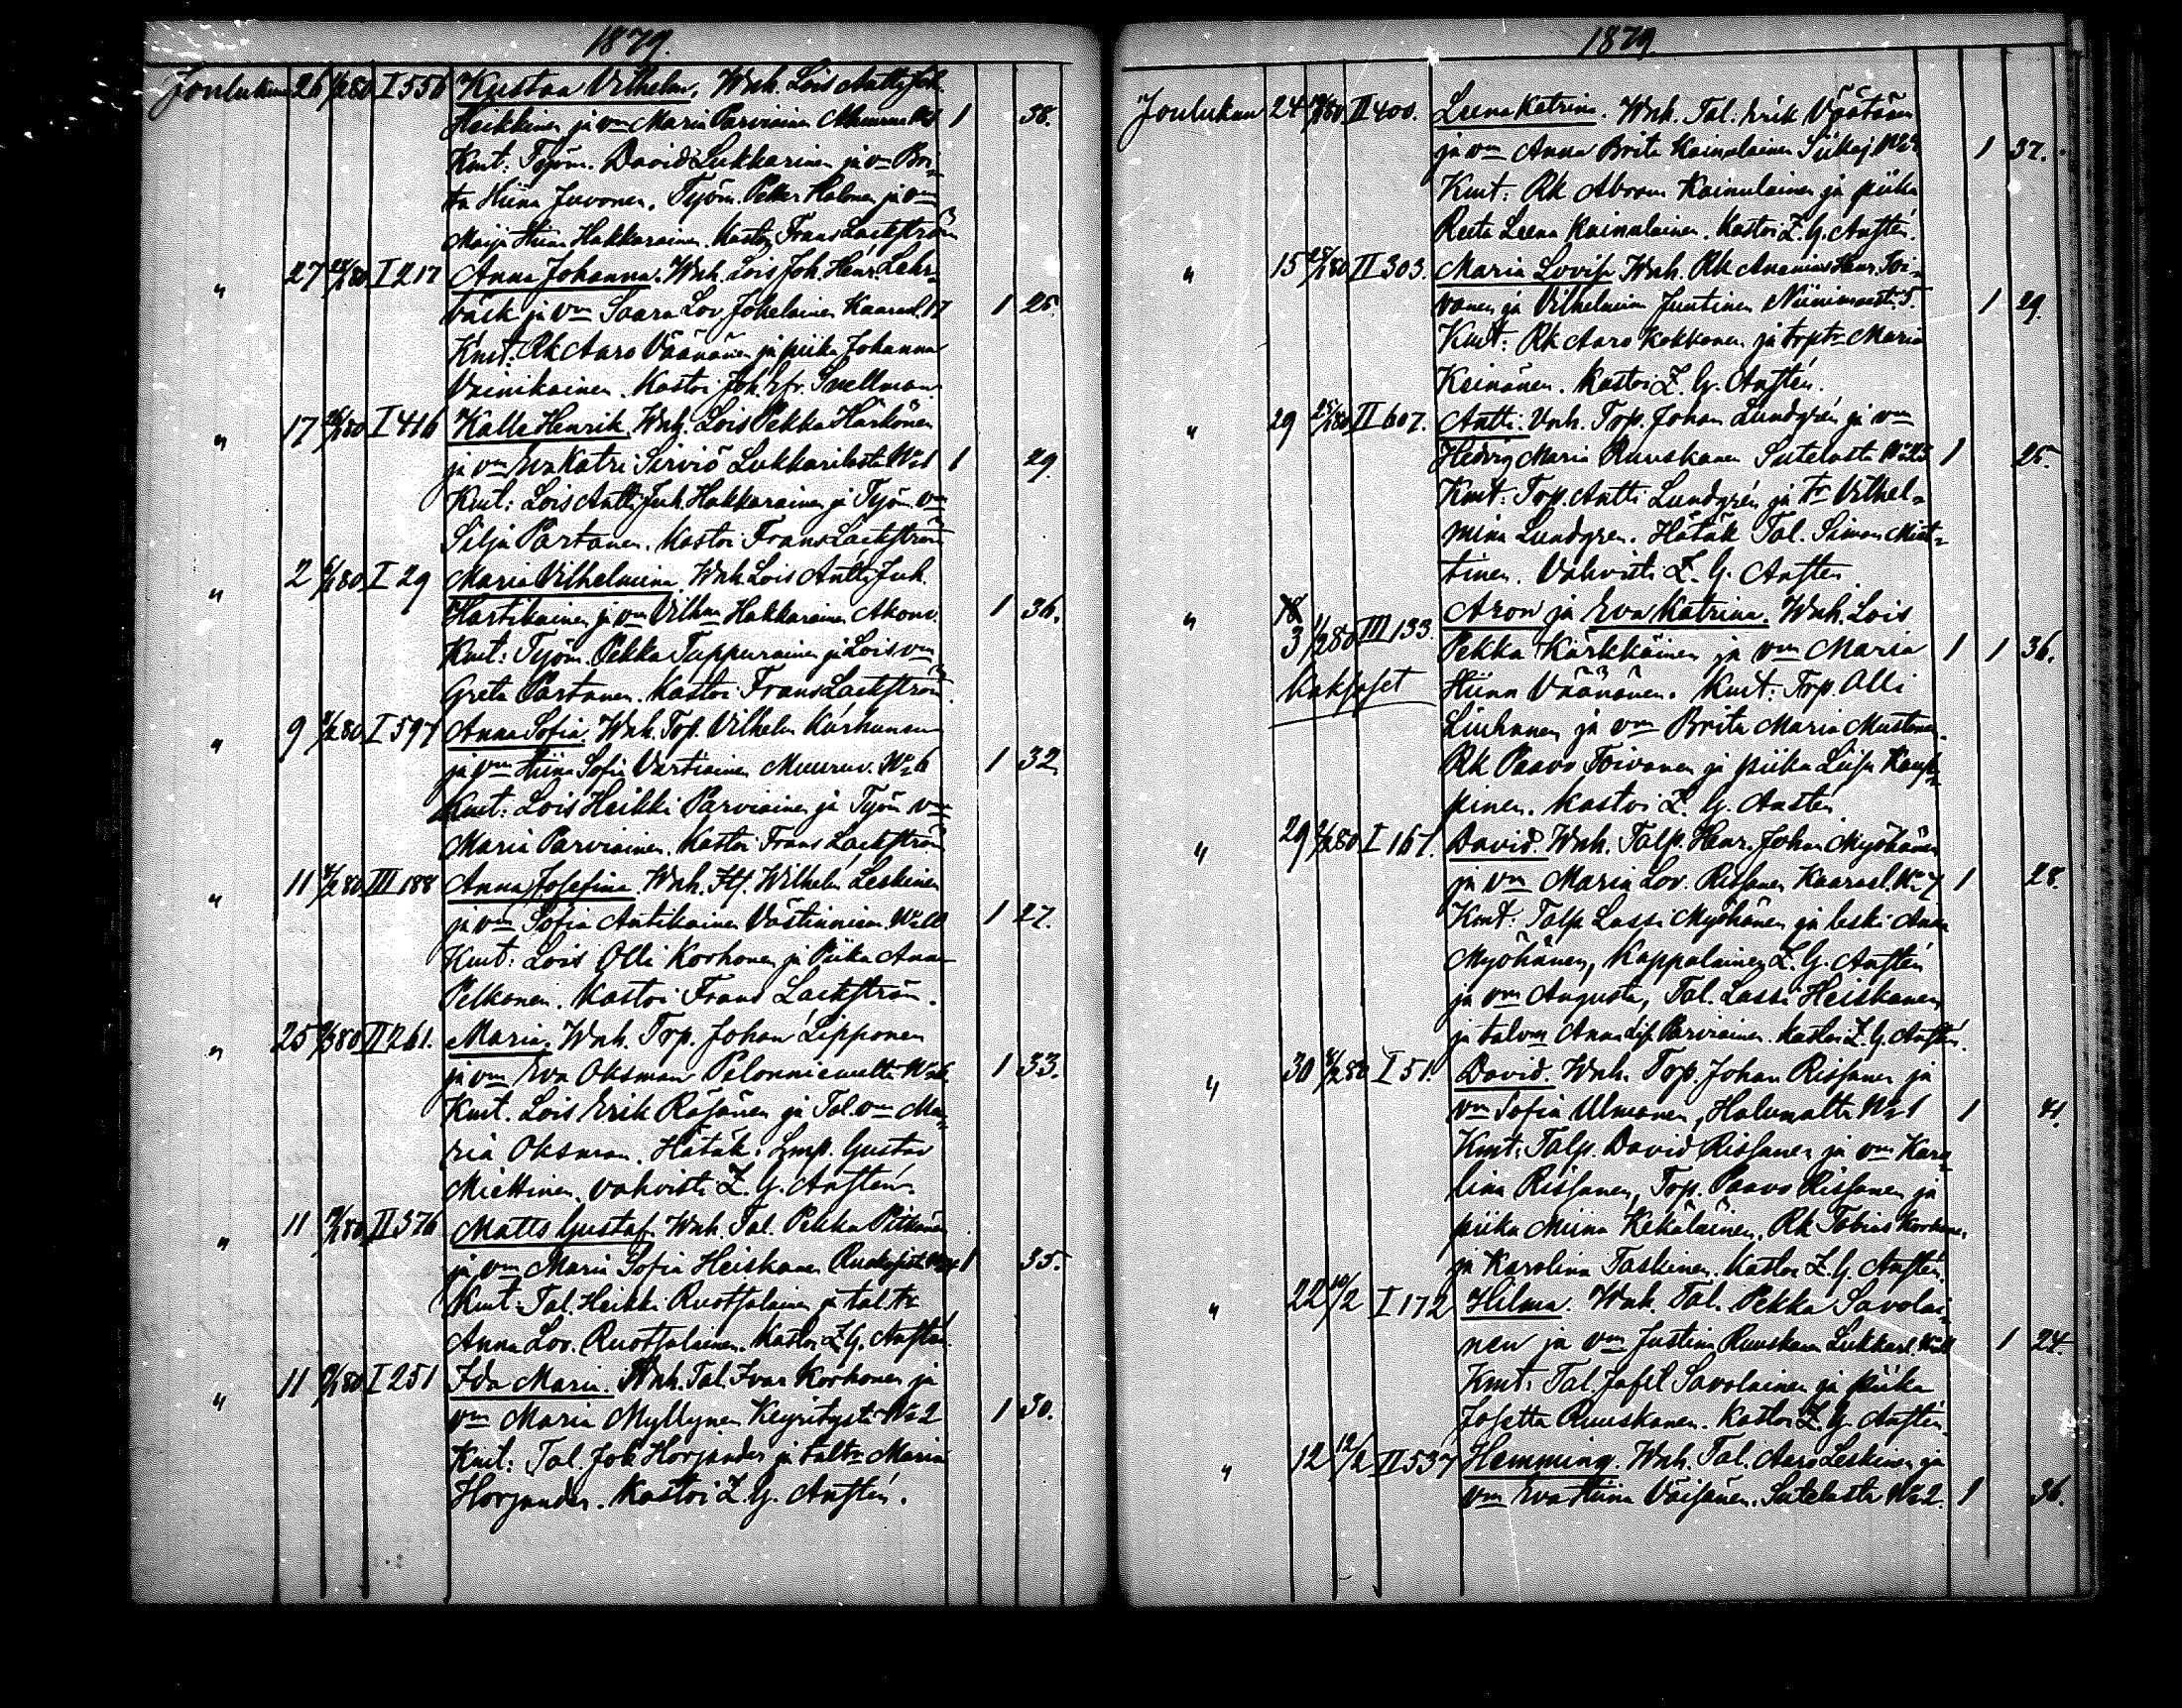 1879.
Joulukuu 26 1/2 80 I 556 Kustaa Vilhelm. Wnh. Lois Antti Joh.
Heikkinen ja vm Maria Parviainen 1 38.
Kmt: Työm. David Lukkarinen ja vm Bri-
ta Hiina Juvonen, Työm. Pekka Halonen ja vm
Maija Stina Hakkarainen. Kastoi Frans Lackström
" 27 I 217 Anna Johanna. Wnh. Lois Joh. Henr. Lehr-
bäck ja vm Saara Lov. Jokelainen Kaarasl. 17 1 25.
Kmt: Rk Aaro Väänänen ja piika Johanna
Vainikainen. Kastoi Joh. Efr. Snellman.
" 17 I 416 Kalle Henrik. Wnh. Lois Pekka Härkönen
ja vm Eva Katri Sirviö Lukkarilasta No 1 1 29.
Kmt: Lois Antti Juh. Hakkarainen ja Työm. vm
Silja Partanen. Kastoi Frans Lackström
" 2 I 29 Maria Vilhelmina. Wnh. Lois Antti Juh.
Hartikainen ja vm Vilhna Hakkarainen Akonv. 1 36.
Kmt: Työm. Pekka Tuppurainen ja Lois vm
Greta Partanen. Kastoi Frans Lackström
" 9 I 597 Anna Sofia. Wnh. Top. Vilhelm Karhunen
ja vm Hiina Sofia Vartiainen Muuruv. No 6 1 32.
Kmt: Lois Heikki Parviainen ja Työm vm
Maria Parviainen. Kastoi Frans Lackström
" 11 III 188 Anna Josefina. Wnh. Itl. Wilhelm Leskinen
ja vm Sofia Antikainen Västinniem. 1 27.
Kmt: Lois Olli Korhonen ja Piika Anna
Pelkonen. Kastoi Frans Lackström.
" 25 II 261. Maria. Wnh. Top. Johan Lipponen
ja vm Eva Oksman Pelonniemeltä 1 33.
Kmt. Lois Erik Räsänen ja Tal. vm Ma-
ria Oksman. Hätäk. Lmp. Gustav
Miettinen. vahvisti Z. G. Anstén.
" 11 II 376 Matts Gustaf. Wnh. Tal. Pekka Pitkänen
ja vm Maria Sofia Heiskanen 1 35.
Kmt: Tal. Heikki Ruotsalainen ja tal. tr
Anna Lov. Ruotsalainen. Kastoi Z. G. Anstén.
" 11 I 251 Ida Maria. Wnh. Tal. Ivar Korhonen ja
vm Maria Myllynen Keyritystä No 2 1 30.
Kmt: Tal. Joh Horjander ja taltr Maria
Horjander. Kastoi Z. G. Anstén.
1879
Joulukuu 24 II 400. Leena Katrina. Wnh. Tal. Erik Väätänen
ja vm Anna Brita Kainulainen Siikaj. 1 37.
Kmt: Rk Abram Kainulainen ja piika
Reeta Leena Kainulainen. Kastoi Z. G. Anstén.
" 15 II 303. Maria Lovisa Wnh. Rk Ananias Henr. Toi-
vanen ja Vilhelmiina Juntinen Niinimäest. 5. 1 29.
Kmt: Rk Aaro Kokkonen ja toptr Maria
Keinänen. Kastoi Z. G. Anstén.
" 29 II 607. Antti. Wnh. Top. Johan Lundgrén ja vm
Hedvig Maria Ruuskanen Sutelasta No 23 1 25.
Kmt: Top. Antti Lundgrén ja tr Vilhel-
mina Lundgren. Hätäk Tal. Simon Miet-
tinen. Vahvisti Z. G. Anstén.
" 3 III 133. Aron ja Eva Katrina. Wnh. Lois
Pekka Kärkkäinen ja vm Maria 1 1 36.
Kaksoset Hiina Väänänen. Kmt: Top. Olli
Liuhanen ja vm Brita Maria Mustonen.
Rk Paavo Toivanen ja piika Liisa Kaup-
pinen. Kastoi Z. G. Anstén
" 29 I 167. David. Wnh. Talp. Henr. Johan Myöhänen
ja vm Maria Lov. Rissanen Kaarasl. No 7 1 28.
Kmt: Talp Lassi Myöhänen ja leski Anna
Myöhänen, Kappalainen Z. G. Anstén
ja vm Augusta, Tal. Lassi Heiskanen,
ja talvm Anna Lis. Parviainen. Kastoi Z. G. Anstén.
" 30 I 51. David. Wnh. Top. Johan Rissanen ja
vm Sofia Ulmanen, Halunalta No 1 1 41.
Kmt: Talp. David Rissanen ja vm Karo-
lina Rissanen, Top. Paavo Rissanen ja
piika Miina Kekäläinen, Rk Tobias Korhonen
ja Karolina Taskinen. Kastoi Z. G. Anstén.
" 22 10/2 I 172 Hilma. Wnh. Tal. Pekka Savolai-
nen ja vm Justiina Ruuskanen Lukkarl. 1 24.
Kmt: Tal. Jafet Savolainen ja piika
Josetta Ruuskanen. Kastoi Z. G. Anstén.
" 12 12/2 II 537 Hemming. Wnh. Tal. Aaro Leskinen ja
vm Eva Stiina Väisänen. Sutelasta No 2. 1 36.